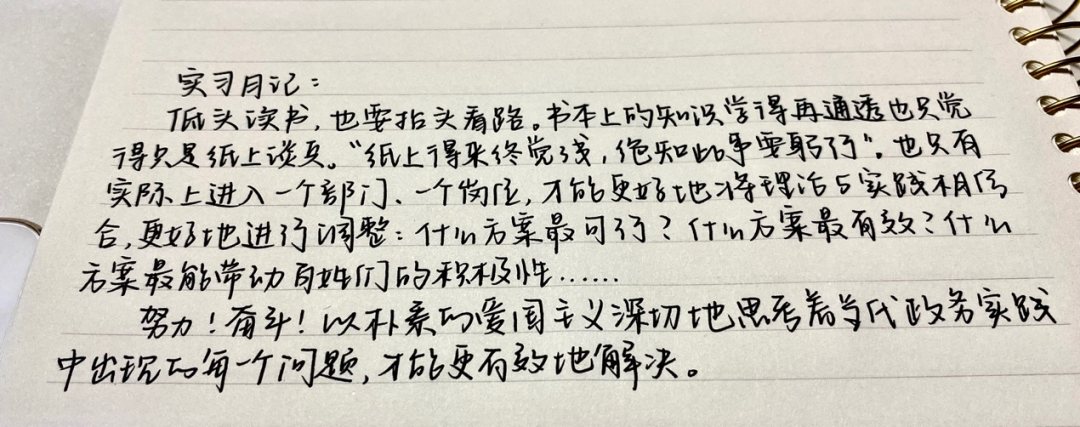 实习日记：
低头读书，也要抬头看路。书本上的知识学得再通透也只觉
得只是纸上谈兵。“纸上得来终觉浅，绝知此事要躬行”。也只有
实际上进入一个部门、一个岗位，才能更好地将理论与实践相结
合，更好地进行调整：什么方案最可行？什么方案最有效？什么
方案最能带动百姓们的积极性……
努力！奋斗！以朴素的爱国主义深切地思考着当代政务实践
中出现的每一个问题，才能更有效地解决。